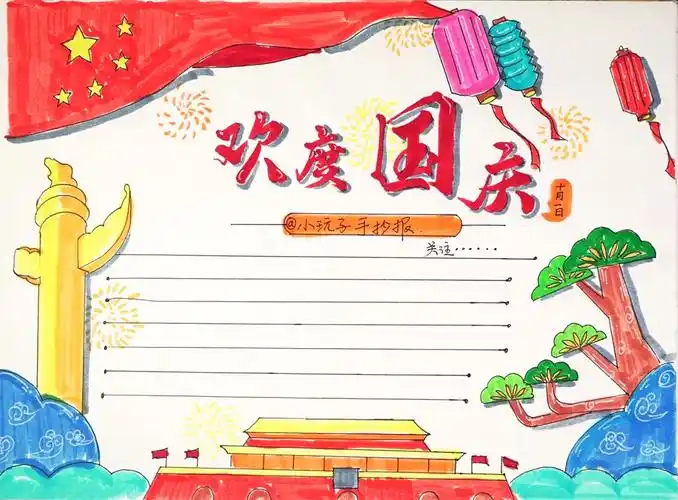 欢度国庆
十月一日
@小玩子手抄报.
关注······